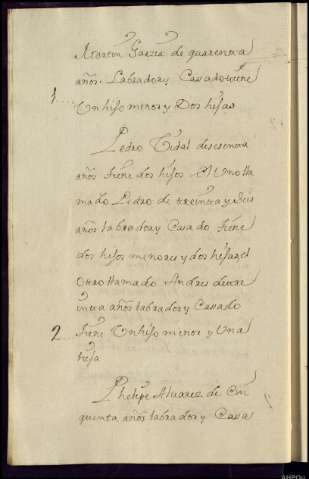 Martin Garzia de quarenta
años Labrador y Casado tiene
1 Un hijo menor y Dos hijas
Pedro Vidal de sesenta
años tiene dos hijos El Uno lla
mado Pedro de treinta y seis
años labrador y Casado tiene
dos hijos menores y dos hijas el
otro llamado Andres de tre
inta años labrador y Casado
2 tiene Un hijo menor y Una
hija
Phelipe Alvarez de Cin
quenta años labrador y Casa